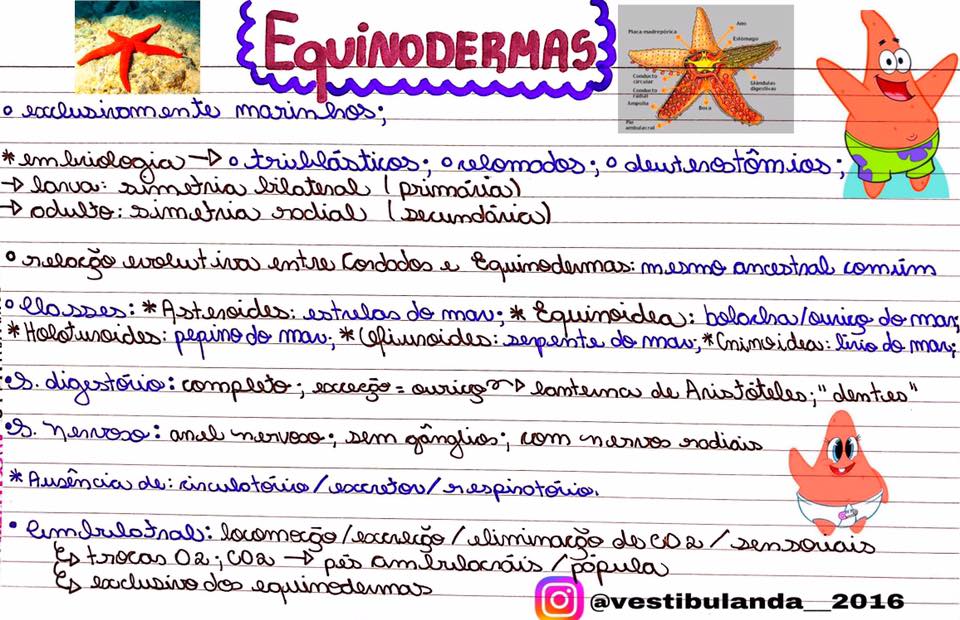 EQUINODERMAS
Placa madrepórica
Ano
Estômago
Conducto circular
Conducto radial
Ampolla
Glândulas digestivas
Boca
Pie ambulacral
o exclusivamente marinhos;
* embriologia → o triblásticos; o celomados; o deuterostômios;
→ larva: simetria bilateral (primária)
→ adulto: simetria radial (secundária)
o relação evolutiva entre Cordados e Equinodermas: mesmo ancestral comum
o Classes: * Asteroides: estrelas do mar; * Equinoidea: bolacha/ouriço do mar;
* Holoturoides: pepino do mar; * Ofiuroides: serpente do mar; * Crinoidea: lírio do mar;
• S. digestório: completo; exceção = ouriço → lanterna de Aristóteles; "dentes"
• S. nervoso: anel nervoso; sem gânglios; com nervos radiais
* Ausência de: circulatório/excretor/respiratório.
• : locomoção/excreção/eliminação de CO2/sensoriais
↳ trocas O2; CO2 → pés ambulacráis/pápula
↳ exclusivo dos equinodermas
@vestibulanda__2016